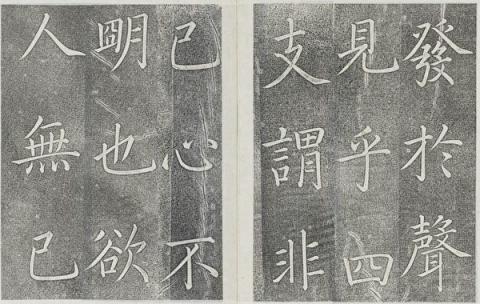 發於聲
見乎四
支謂非
己心不
明也欲
人無己